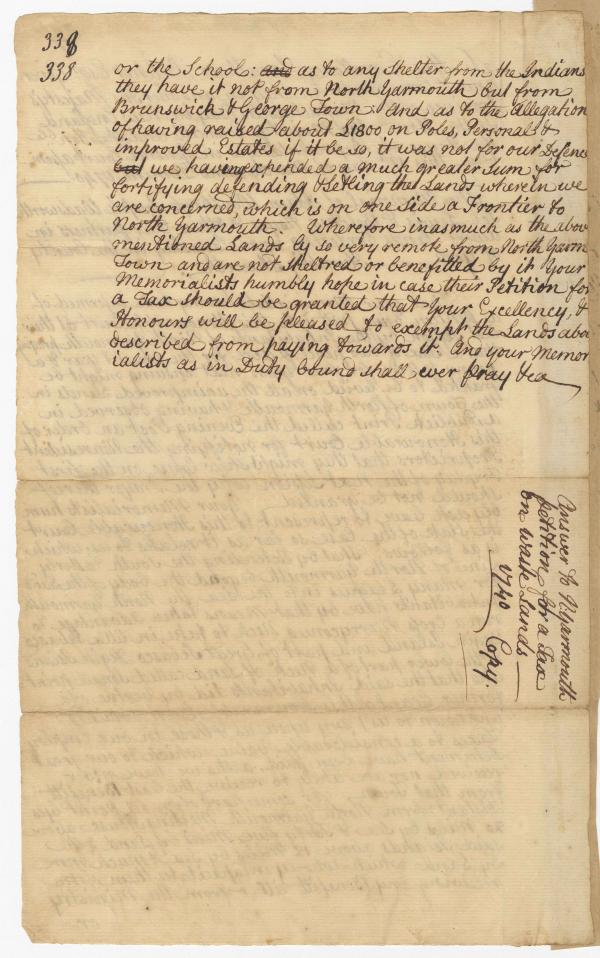 338
338
or the School: and as to any Shelter from the Indians
they have it not from North Yarmouth but from
Brunswick & George Town: And as to the Allegation
of having raised about £1800 on Poles, Personal &
improved Estates if it be so, it was not for our Defence
but we having expended a much greater Sum for
fortifying defending & Setling the Lands wherein we
are concerned, which is on one side a Frontier to
North Yarmouth. Wherefore inasmuch as the above
mentioned Lands ly so very remote from North Yarm
Town and are not sheltred or benefitted by it Your
Memorialists humbly hope in case their Petition for
a Tax should be granted that Your Excellency, &
Honours will be pleased to exempt the Lands abov
described from paying towards it. And your Memor
ialists as in Duty bound shall ever pray &ca
Answer to N: Yarmouth
petition for a Tax
on waste Lands
1740
Copy.